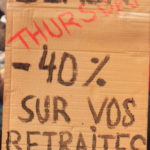 THURSDAY
-40%
SUR VOS
RETRAITES